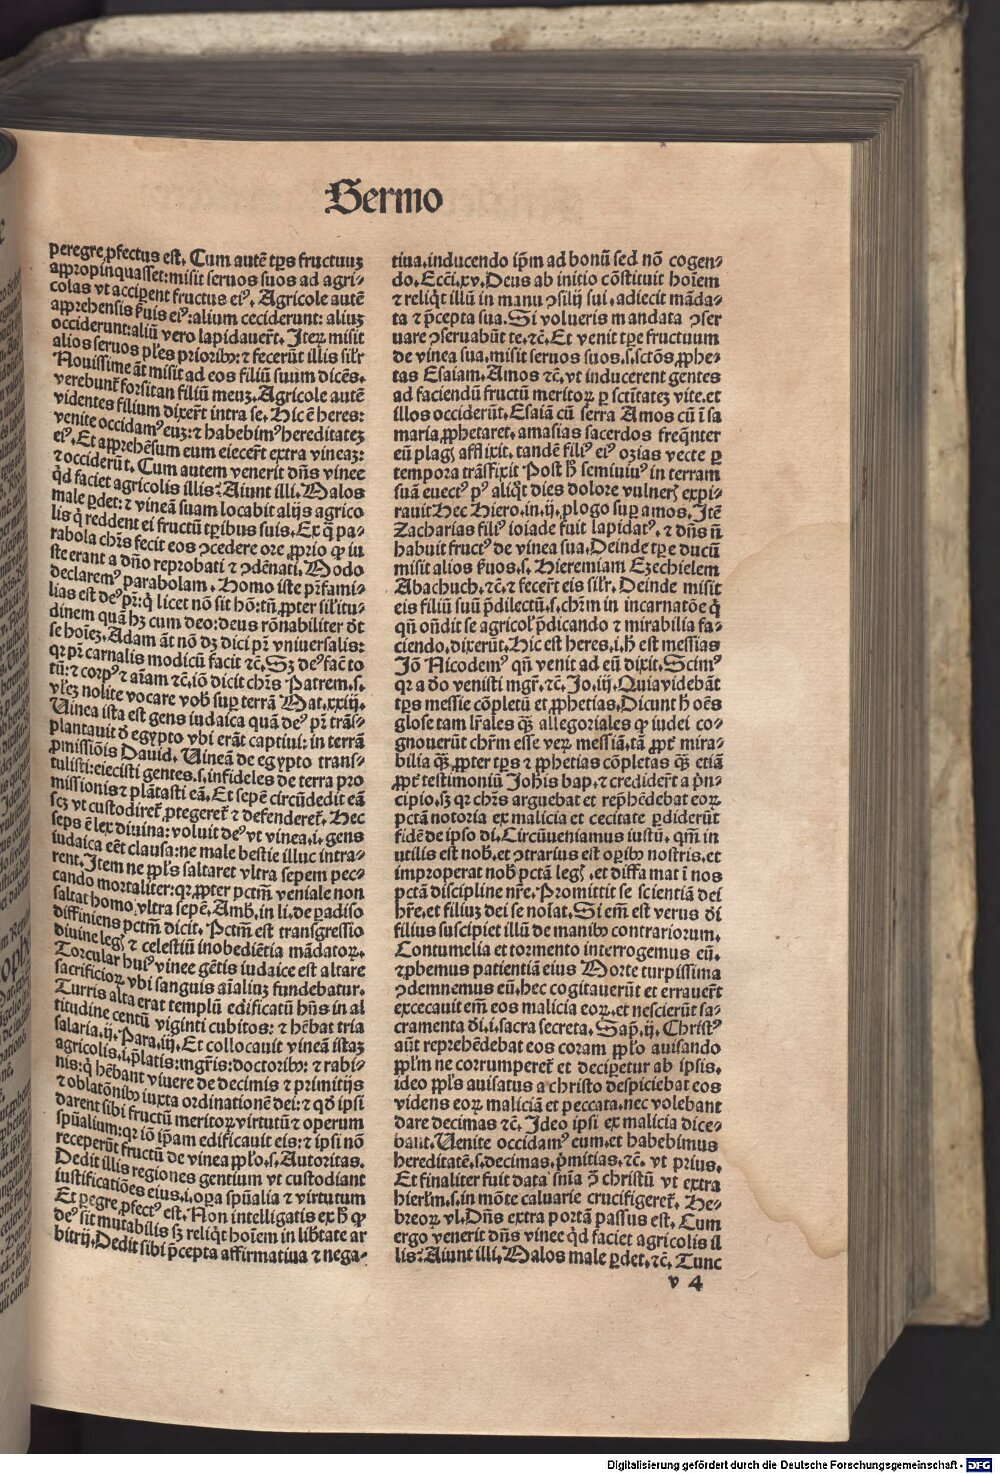 Sermo
peregre ꝓfectus est. Cum autē tꝑs fructuuꝫ
appropinquasset: misit seruos suos ad agri⸗
colas vt acciꝑent fructus eiꝰ. Agricole autē
apprehensis ẜuis eiꝰ: alium ceciderunt: aliuꝫ
occiderunt: aliū vero lapidauer̄t. Iteꝝ misit
alios seruos pl̄es prioribꝰ: ⁊ fecerūt illis sil̄r
Nouissime āt misit ad eos filiū suum dicēs.
verebunt̄ forsitan filiū meuꝫ. Agricole autē
videntes filium dixer̄t intra se. Hic ē heres:
venite occidamꝰ euꝫ: ⁊ habebimꝰ hereditateꝫ
eiꝰ. Et apprehēsum eum eiecer̄t extra vineaꝫ:
⁊ occiderūt. Cum autem venerit dn̄s vinee
qd̄ faciet agricolis illis? Aiunt illi. Malos
male ꝑdet: ⁊ vineā suam locabit alijs agrico
lis q̇ reddent ei fructū tꝑibus suis. Ex q̄ pa⸗
rabola chr̄s fecit eos ꝯcedere ore ꝓprio ꝙ iu
ste erant a dn̄o reprobati ⁊ ꝯdēnati. Modo
declaremꝰ parabolam. Homo iste pr̄fami⸗
lias est deꝰ pr̄: q̇ licet nō sit hō: tn̄ ꝓpter sil̄itu⸗
dinem quā hꝫ cum deo: deus rōnabiliter dr̄
se hoīeꝫ. Adam āt nō dꝫ dici pr̄ vniuersalis:
qꝛ pr̄ carnalis modicū facit ⁊c. Sꝫ deꝰ fac̄ to
tū: ⁊ corpꝰ ⁊ aīam ⁊c. iō dicit chr̄s Patrem .s.
vl̄eꝫ nolite vocare vob̄ suꝑ terrā Mat. xxiij.
Uinea ista est gens iudaica quā deꝰ pr̄ trās⸗
plantauit d̄ egypto vbi erāt captiui: in terrā
ꝓmissiōis Dauid. Uineā de egypto trans⸗
tulisti: eiecisti gentes .s. infideles de terra pro
missionis ⁊ plātasti eā. Et sepē circūdedit eā
scꝫ vt custodiret̄ ꝓtegeret̄ ⁊ defenderet̄. Hec
seps ē lex diuina: voluit deꝰ vt vinea .i. gens
iudaica eēt clausa: ne male bestie illuc intra⸗
rent. Item ne ppl̄s saltaret vltra sepem pec⸗
cando mortaliter: qꝛ ꝓpter pctm̄ veniale non
saltat homo vltra sepē. Amb. in li. de ꝑadiso
diffiniens pctm̄ dicit. Pctm̄ est transgressio
diuine legꝭ ⁊ celestiū inobediētia mādatoꝝ.
Torcular huiꝰ vinee gētis iudaice est altare
sacrificioꝝ vbi sanguis aīaliuꝫ fundebatur.
Turris alta erat templū edificatū hn̄s in al
titudine centū viginti cubitos: ⁊ hēbat tria
salaria .ij. Para. iij. Et collocauit vineā istaꝫ
agricolis .i. p̄latis: mgr̄is: doctoribꝰ: ⁊ rabi⸗
nis: q̇ hēbant viuere de decimis ⁊ primitijs
⁊ oblatōnibꝰ iuxta ordinationē dei: ⁊ qd̄ ipsi
darent sibi fructū meritoꝝ virtutū ⁊ operum
spūalium: qꝛ iō ip̄am edificauit eis: ⁊ ipsi nō
receperūt fructū de vinea ppl̄o .s. Autoritas.
Dedit illis regiones gentium vt custodiant
iustificatiōes eius .i. oꝑa spūalia ⁊ virtutum
Et ꝑegre ꝓfectꝰ est. Non intelligatis ex h̄ ꝙ
deꝰ sit mutabilis sꝫ reliq̇t hoīem in lib̄tate ar
bitrij. Dedit sibi p̄cepta affirmatiua ⁊ nega⸗
tiua. inducendo ip̄m ad bonū sed nō cogen⸗
do. Ecc̄i. xv. Deus ab initio cōstituit hoīem
⁊ reliq̇t illū in manu ꝯsilij sui. adiecit māda⸗
ta ⁊ p̄cepta sua. Si volueris mandata ꝯser
uare ꝯseruabūt te. ⁊c. Et venit tꝑe fructuum
de vinea sua. misit seruos suos .s. sctōs ꝓphe⸗
tas Esaiam. Amos ⁊c. vt inducerent gentes
ad faciendū fructū meritoꝝ ꝑ sctītateꝫ vite. et
illos occiderūt. Esaiā cū serra Amos cū ī sa
maria ꝓphetaret. amasias sacerdos freq̄nter
eū plagꝭ afflixit. tandē filiꝰ eiꝰ ozias vecte ꝑ
tempora trāsfixit Post h̄ semiuiuꝰ in terram
suā euectꝰ pꝰ aliq̇t dies dolore vulnerꝭ expi⸗
rauit Hec Hiero. in .ij. plogo suꝑ amos. Itē
Zacharias filiꝰ ioiade fuit lapidatꝰ. ⁊ dn̄s n̄
habuit fructꝰ de vinea sua. Deinde tꝑe ducū
misit alios ẜuos .s. Hieremiam Ezechielem
Abachuch. ⁊c. ⁊ fecer̄t eis sil̄r. Deinde misit
eis filiū suū p̄dilectū .s. chr̄m in incarnatōe q̇
qn̄ on̄dit se agricol̄ p̄dicando ⁊ mirabilia fa⸗
ciendo. dixerūt. Hic est heres .i. h̄ est messias
Iō Nicodemꝰ qn̄ venit ad eū dixit. Scimꝰ
qꝛ a d̄o venisti mgr̄. ⁊c. Jo. iij. Quia videbāt
tꝑs messie cōpletū et ꝓphetias. Dicunt h̄ oēs
glose tam lr̄ales qꝫ̄ allegoriales ꝙ iudei co⸗
gnouerūt chr̄m esse veꝝ messiā. tā ꝓpt̄ mira⸗
bilia qꝫ̄ ꝓpter tꝑs ⁊ ꝓphetias cōpletas qꝫ̄ etiā
ꝓpt̄ testimoniū Joh̄is bap. ⁊ credider̄t a p̄n⸗
cipio. sꝫ qꝛ chr̄s arguebat et rep̄hēdebat eoꝝ
pctā notoria ex malicia et cecitate ꝑdiderūt
fidē de ipso di. Circūueniamus iustū. qm̄ in
utilis est nob̄. et ꝯtrarius est oꝑibꝰ nostris. et
improperat nob̄ pctā legꝭ. et diffamat ī nos
pctā discipline nr̄e. Promittit se scientiā dei
hr̄e. et filiuꝫ dei se noīat. Si em̄ est verus d̄i
filius suscipiet illū de manibꝰ contrariorum.
Contumelia et tormento interrogemus eū.
⁊ ꝓbemus patientiā eius Morte turpissima
ꝯdemnemus eū. hec cogitauerūt et errauer̄t
excecauit em̄ eos malicia eoꝝ. et nescierūt sa⸗
cramenta d̄i .i. sacra secreta. Sap̄. ij. Christꝰ
aūt reprehēdebat eos coram ppl̄o auisando
ppl̄m ne corrumperet̄ et deciꝑetur ab ipsis.
ideo ppl̄s auisatus a christo despiciebat eos
videns eoꝝ maliciā et peccata. nec volebant
dare decimas ⁊c. Ideo ipsi ex malicia dice⸗
bant. Uenite occidamꝰ eum. et habebimus
hereditatē .s. decimas. p̄mitias. ⁊c. vt prius.
Et finaliter fuit data sn̄ia ꝯ̄ christū vt extra
hierl̄m .s. in mōte caluarie crucifigeret̄. He⸗
breoꝝ vl̄. Dn̄s extra portā passus est. Cum
ergo venerit dn̄s vinee qd̄ faciet agricolis il
lis? Aiunt illi. Malos male ꝑdet. ⁊c. Tunc
v 4
Digitalisierung gefördert durch die Deutsche Forschungsgemeinschaft - DFG